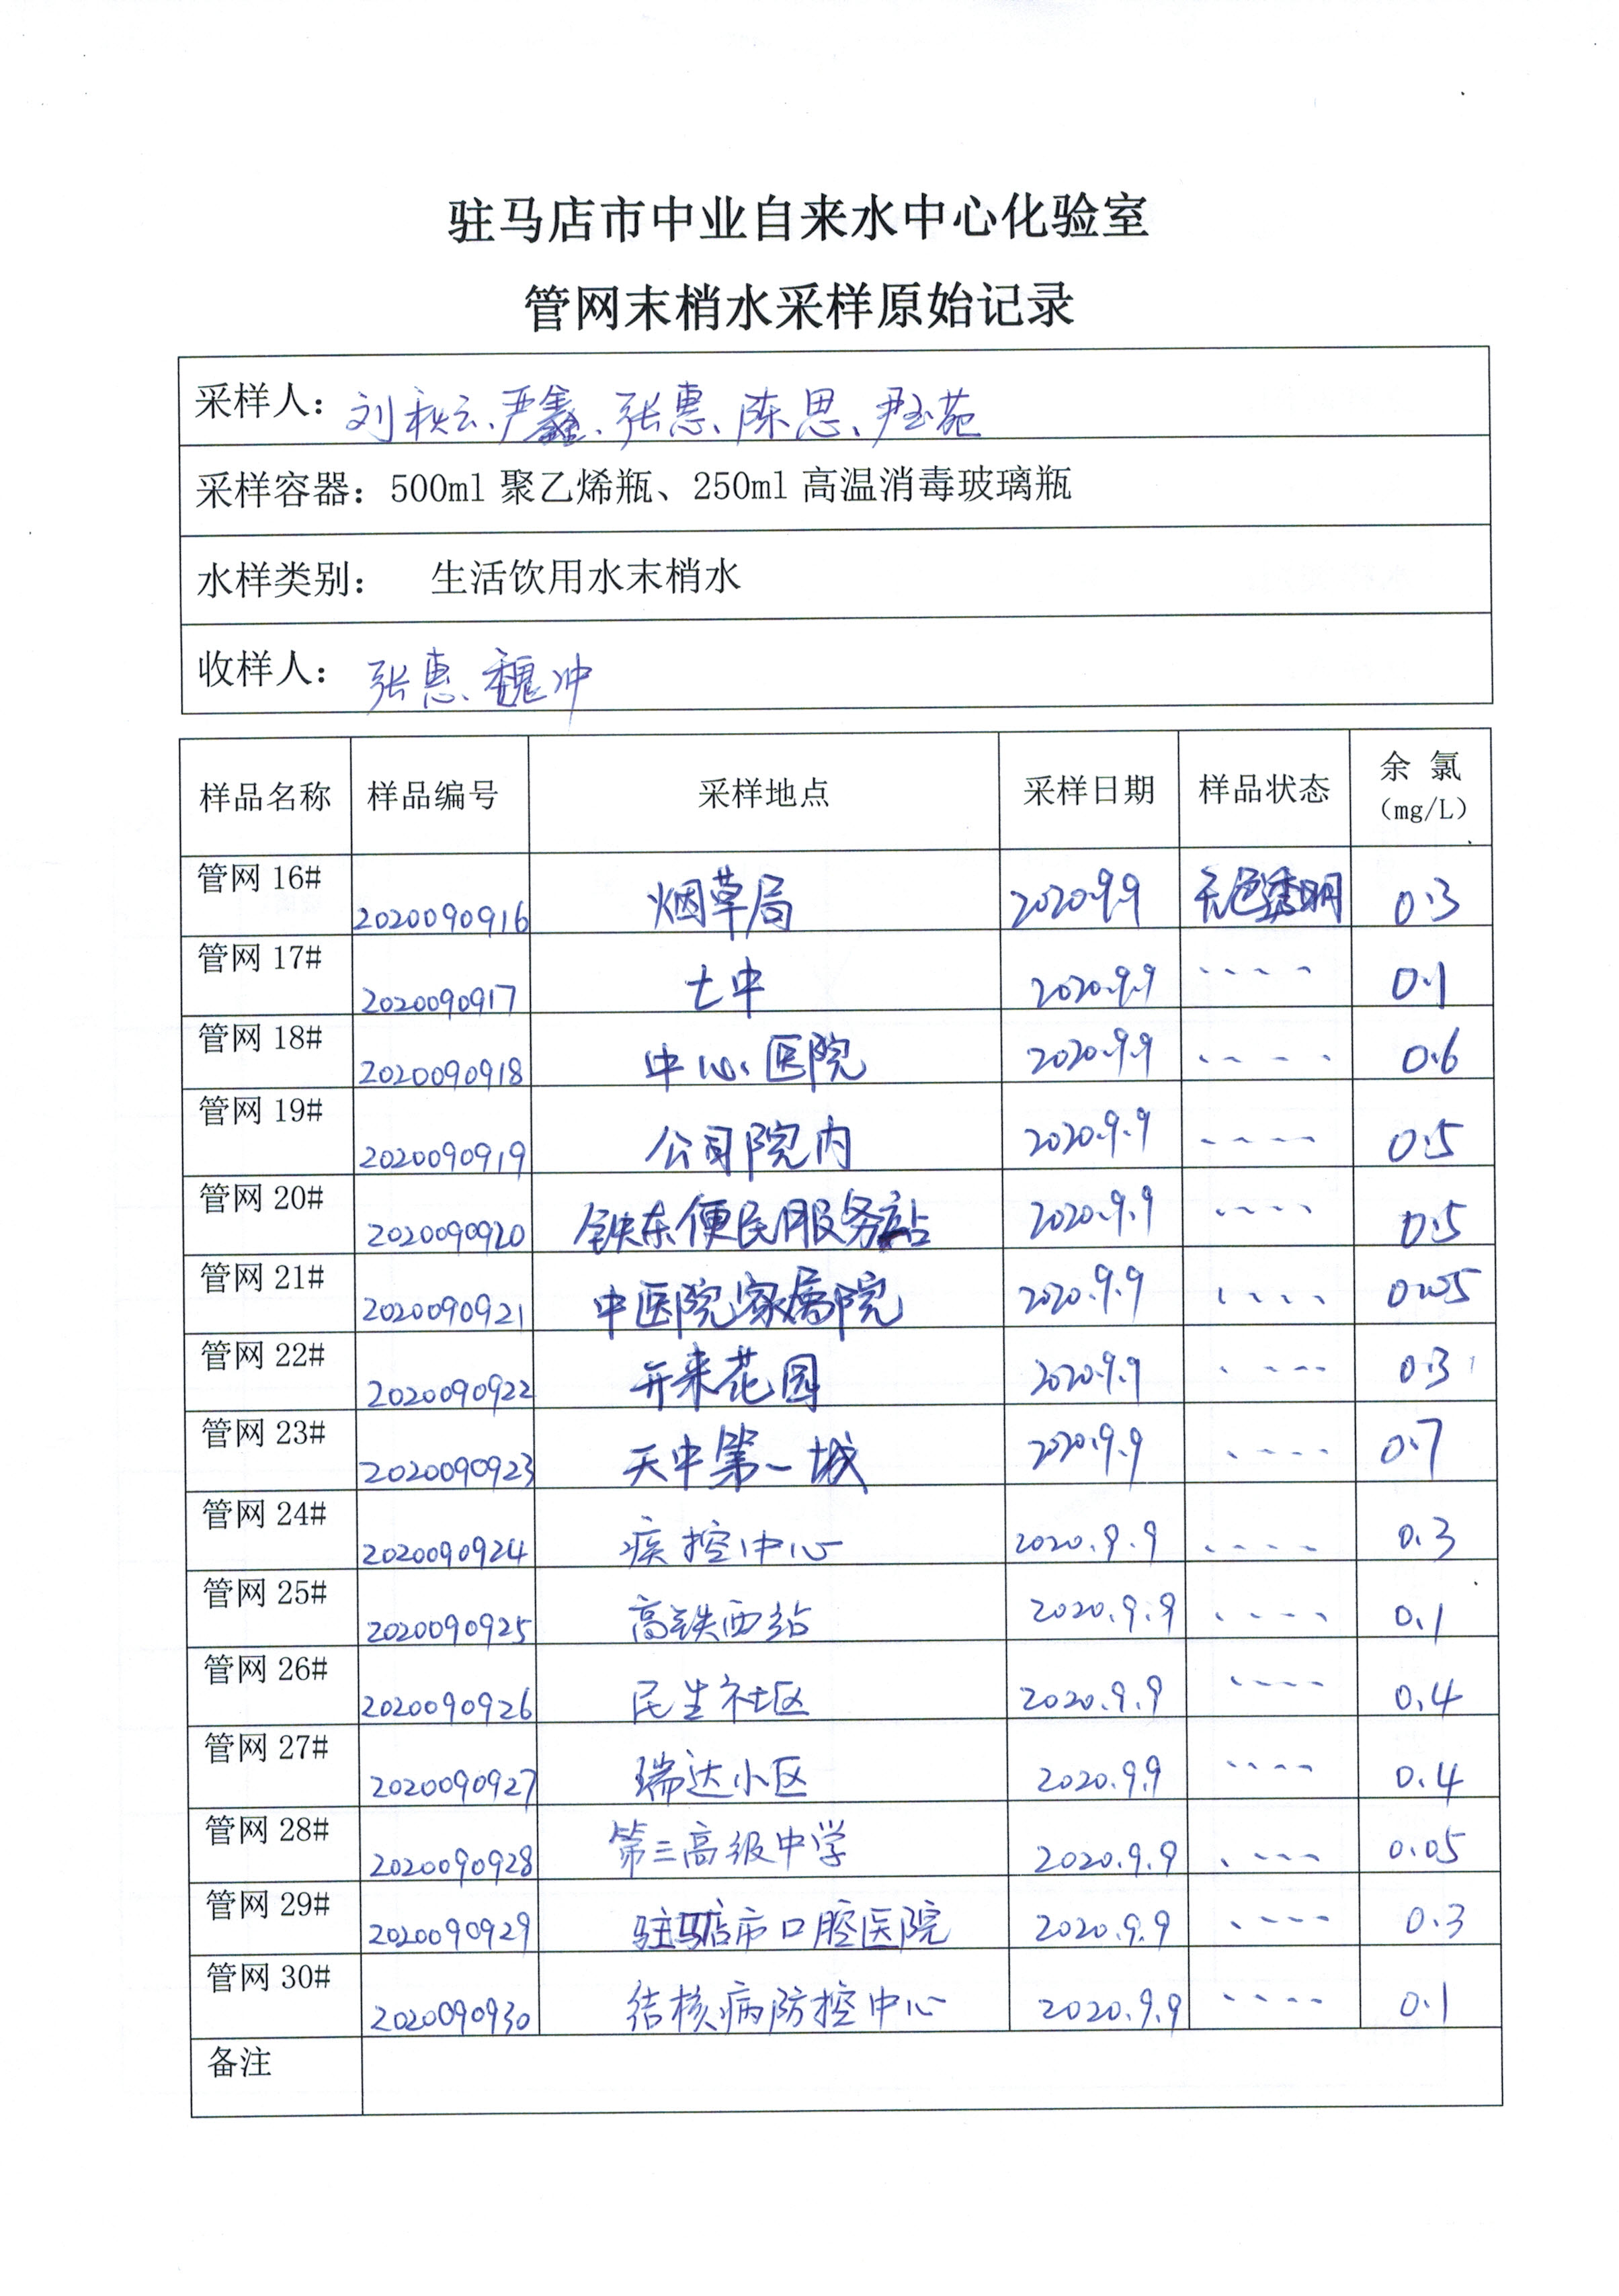 驻马店市中业自来水中心化验室
管网末梢水采样原始记录
采样人：刘秋云、严鑫、张惠、陈思、尹玉苑
采样容器：500ml聚乙烯瓶、250ml高温消毒玻璃瓶
水样类别： 生活饮用水末梢水
收样人：张惠、魏冲
样品名称 样品编号 采样地点 采样日期 样品状态 余氯（mg/L）
管网16# 2020090916 烟草局 2020.9.9 无色透明 0.3
管网17# 2020090917 七中 2020.9.9 、、、、 0.1
管网18# 2020090918 中心医院 2020.9.9 、、、、 0.6
管网19# 2020090919 公司院内 2020.9.9 、、、、 0.5
管网20# 2020090920 铁东便民服务站 2020.9.9 、、、、 0.5
管网21# 2020090921 中医院家属院 2020.9.9 、、、、 0.05
管网22# 2020090922 开来花园 2020.9.9 、、、、 0.3
管网23# 2020090923 天中第一城 2020.9.9 、、、、 0.7
管网24# 2020090924 疾控中心 2020.9.9 、、、、 0.3
管网25# 2020090925 高铁西站 2020.9.9 、、、、 0.1
管网26# 2020090926 民生社区 2020.9.9 、、、、 0.4
管网27# 2020090927 瑞达小区 2020.9.9 、、、、 0.4
管网28# 2020090928 第三高级中学 2020.9.9 、、、、 0.05
管网29# 2020090929 驻马店市口腔医院 2020.9.9 、、、、 0.3
管网30# 2020090930 结核病防控中心 2020.9.9 、、、、 0.1
备注